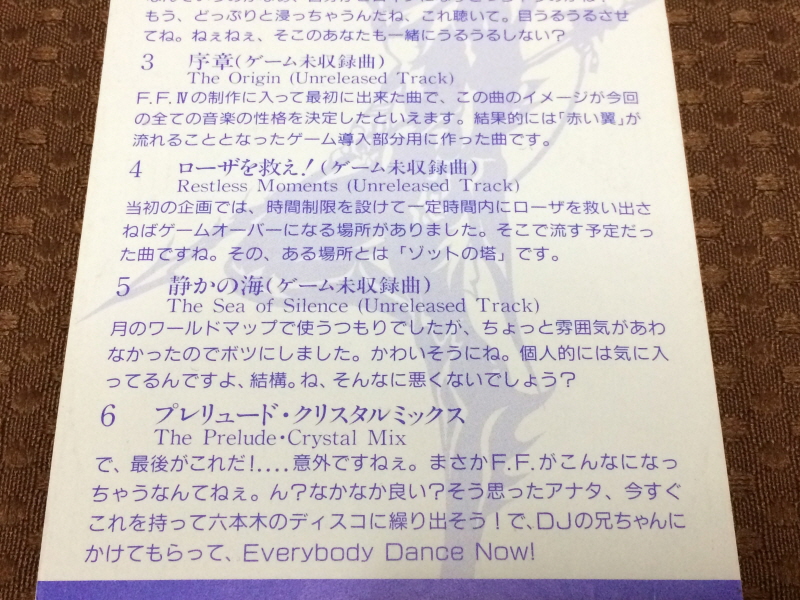 もう、どっぷりと浸っちゃうんだね、これ聴いて。目うるうるさせ
てね。ねぇねぇ、そこのあなたも一緒にうるうるしない?
3 序章(ゲーム未収録曲)
The Origin (Unreleased Track)
F.F.Ⅳの制作に入って最初に出来た曲で、この曲のイメージが今回
の全ての音楽の性格を決定したといえます。結果的には「赤い翼」が
流れることとなったゲーム導入部分用に作った曲です。
4 ローザを救え!(ゲーム未収録曲)
Restless Moments (Unreleased Track)
当初の企画では、時間制限を設けて一定時間内にローザを救い出さ
ねばゲームオーバーになる場所がありました。そこで流す予定だっ
た曲ですね。その、ある場所とは「ゾットの塔」です。
5 静かの海(ゲーム未収録曲)
The Sea of Silence (Unreleased Track)
月のワールドマップで使うつもりでしたが、ちょっと雰囲気があわ
なかったのでボツにしました。かわいそうにね。個人的には気に入
ってるんですよ、結構。ね、そんなに悪くないでしょう?
6 プレリュード・クリスタルミックス
The Prelude・Crystal Mix
で、最後がこれだ!....意外ですねぇ。まさかF.F.がこんなになっ
ちゃうなんてねぇ。ん?なかなか良い?そう思ったアナタ、今すぐ
これを持って六本木のディスコに繰り出そう!で、DJの兄ちゃんに
かけてもらって、Everybody Dance Now!